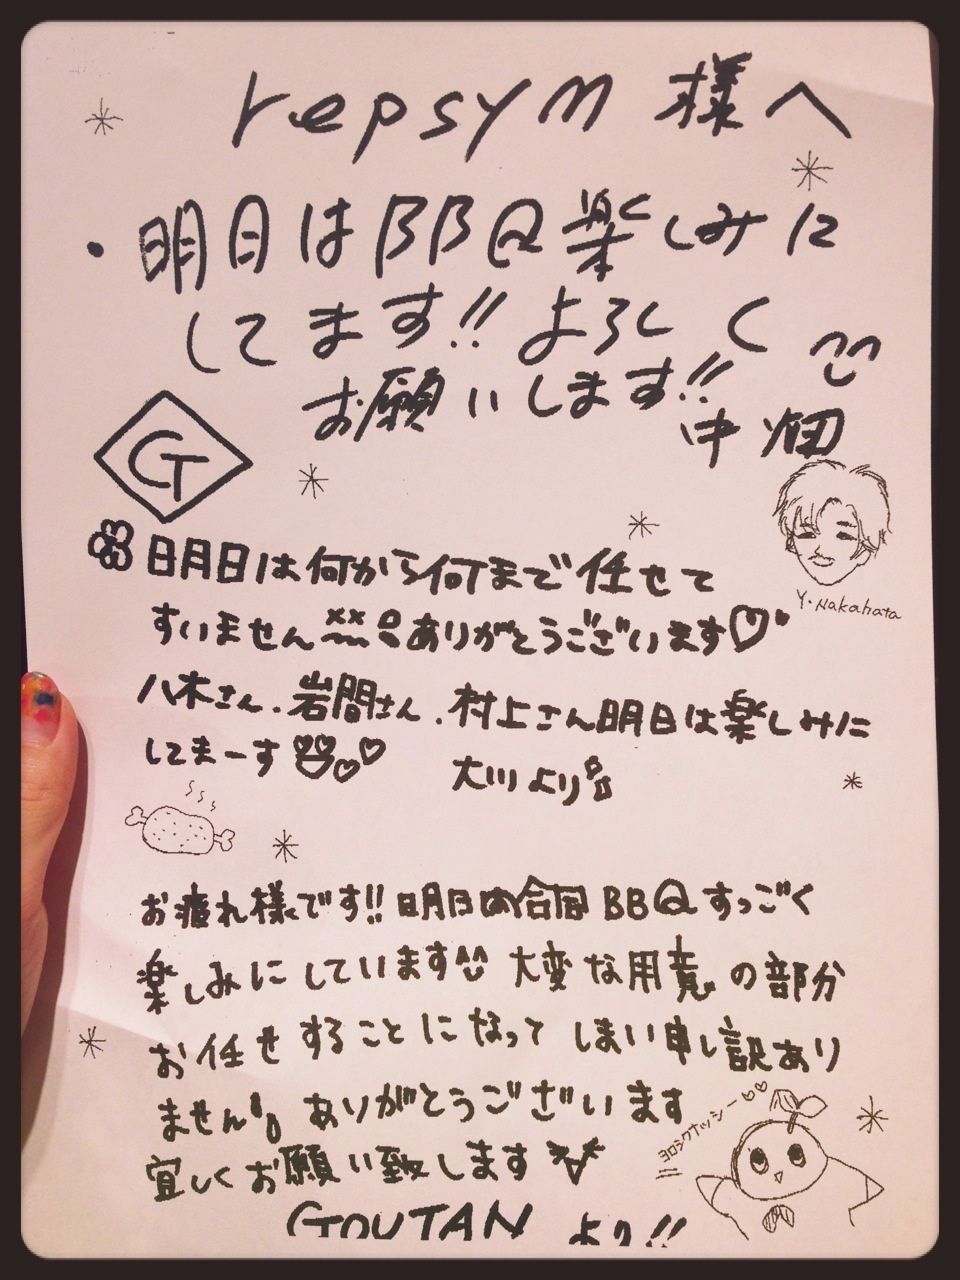 repsym 様へ
・明日はBBQ楽しみに
してます!! よろしく
お願いします!!
中畑
GT
Y・Nakahata
明日は何から何まで任せて
すいません ありがとうございます♡
八木さん、岩間さん、村上さん明日は楽しみに
してまーす
大川より
お疲れ様です!! 明日の合同BBQすっごく
楽しみにしています 大変な用意の部分
お任せすることになってしまい申し訳あり
ません ありがとうございます
宜しくお願い致します
ヨロシクナッシー♡♡
GOUTAN より!!